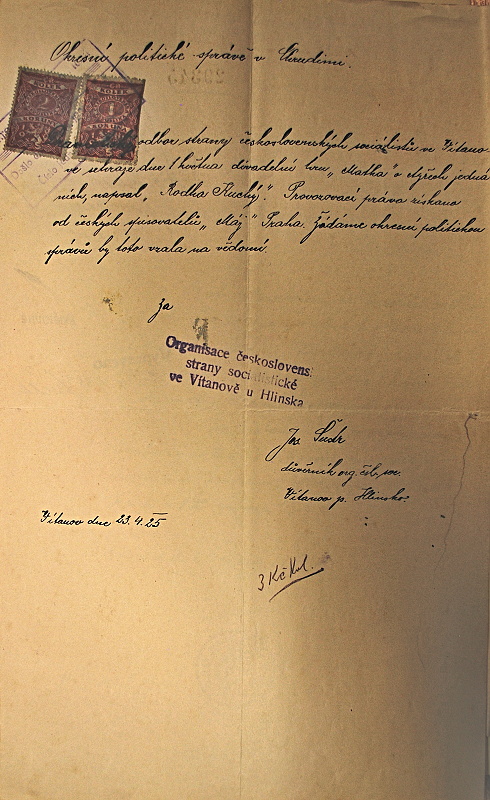 Okresní politické správě v Chrudimi.
KOLEK
KOLEK
odbor strany československých socialistů ve Vítano-
ve sehraje dne 1 května divadelní hru „Matka" o čtyřech jedná
ních, napsal „ Rodha Ruchý". Provozovací práva získána
od českých spisovatelů „ Máj" Praha. Žádáme okresní politickou
správu by toto vzala na vědomí.
Za
Organisace českoslovens
strany socialistické
ve Vítanově u Hlinska
Jos Šudr
důvěrník org. čsl. soc.
Vítanov p. Hlinsko
Vítanov dne 23.4.25
3 Kč kol.